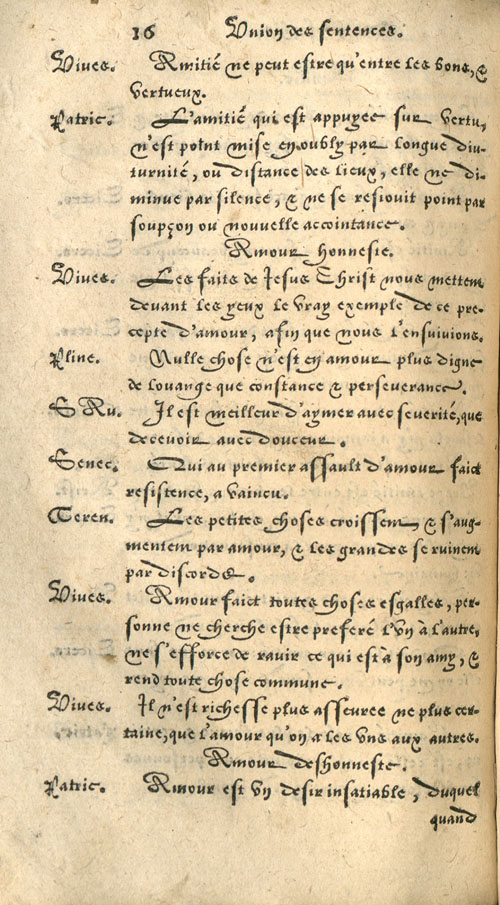 16 Vnion des sentences.
Vives. Amitié ne peut estre qu'entre les bons, &
vertueux.
Patric. L'amitié qui est appuyee sur vertu,
n'est point mise en oubly par longue diu-
turnité, ou distance des lieux, elle ne di-
minue par silence, & ne se resiouit point par
soupçon ou nouvelle accointance.
Amour honneste.
Vives. Les faits de Jesus Christ nous mettent
devant les yeux le vray exemple de ce pre-
cepte d'amour, afin que nous l'ensuivions.
Pline. Nulle chose n'est en amour plus digne
de louange que constance & perseverance.
S Au. Il est meilleur d'aymer avec severité, que
decevoir avec douceur.
Senec. Qui au premier assault d'amour faict
resistence, a vaincu.
Teren. Les petites choses croissent, & s'aug-
mentent par amour, & les grandes se ruinent
par discorde.
Vives. Amour faict toutes choses esgalles, per-
sonne ne cherche estre preferé l'vn à l'autre,
ne s'efforce de ravir ce qui est à son amy, &
rend toute chose commune.
Vives. Il n'est richesse plus asseuree ne plus cer-
taine, que l'amour qu'on a les vns aux autres.
Amour deshonneste.
Patric. Amour est vn desir insatiable, duquel
quand